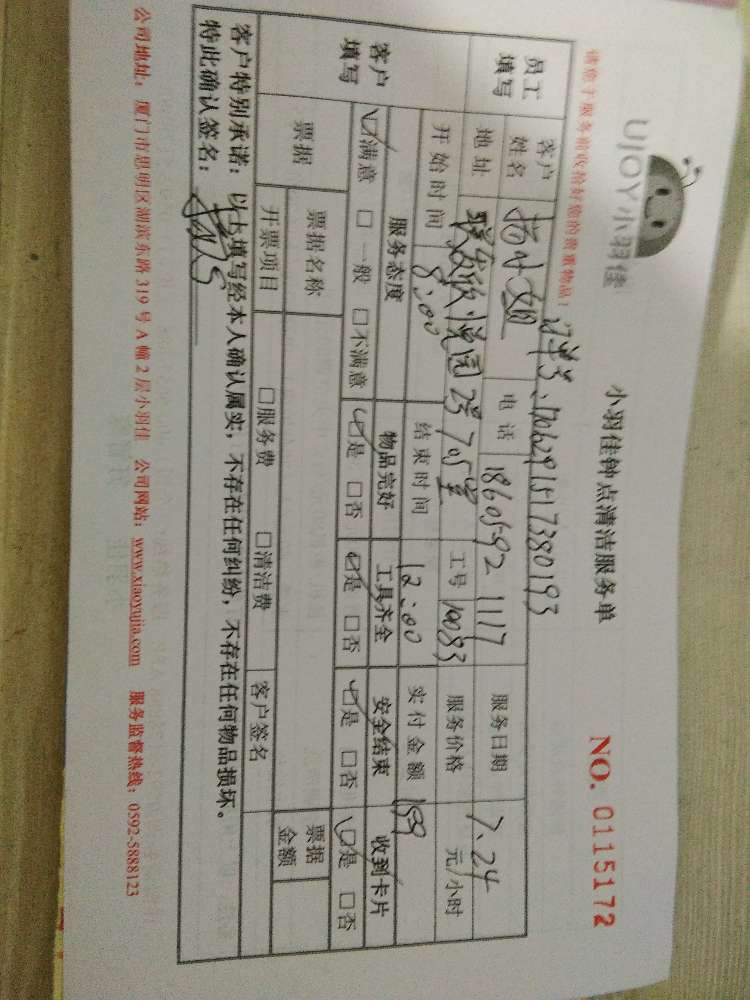 UJOY小羽佳
小羽佳钟点清洁服务单
NO. 0115172
请您于服务前收拾好您的贵重物品!
订单号:
员工填写
客户姓名 杨小姐 电话 18605921117 服务日期 7.24
地址 联发欣悦园 705室 工号 10083 服务价格 元/小时
开始时间 8:00 结束时间 12:00 实付金额 199
客户填写
服务态度 物品完好 工具齐全 安全结束 收到卡片
☑满意 □一般 □不满意 ☑是 □否 ☑是 □否 ☑是 □否 ☑是 □否
票据
票据名称 票据金额
开票项目 □服务费 □清洁费 客户签名
客户特别承诺:以上填写经本人确认属实,不存在任何纠纷,不存在任何物品损坏。
特此确认签名:
公司地址:厦门市思明区湖滨东路 319 号 A 幢 2 层小羽佳 公司网站:www.xiaoyujia.com 服务监督热线:0592-5888123